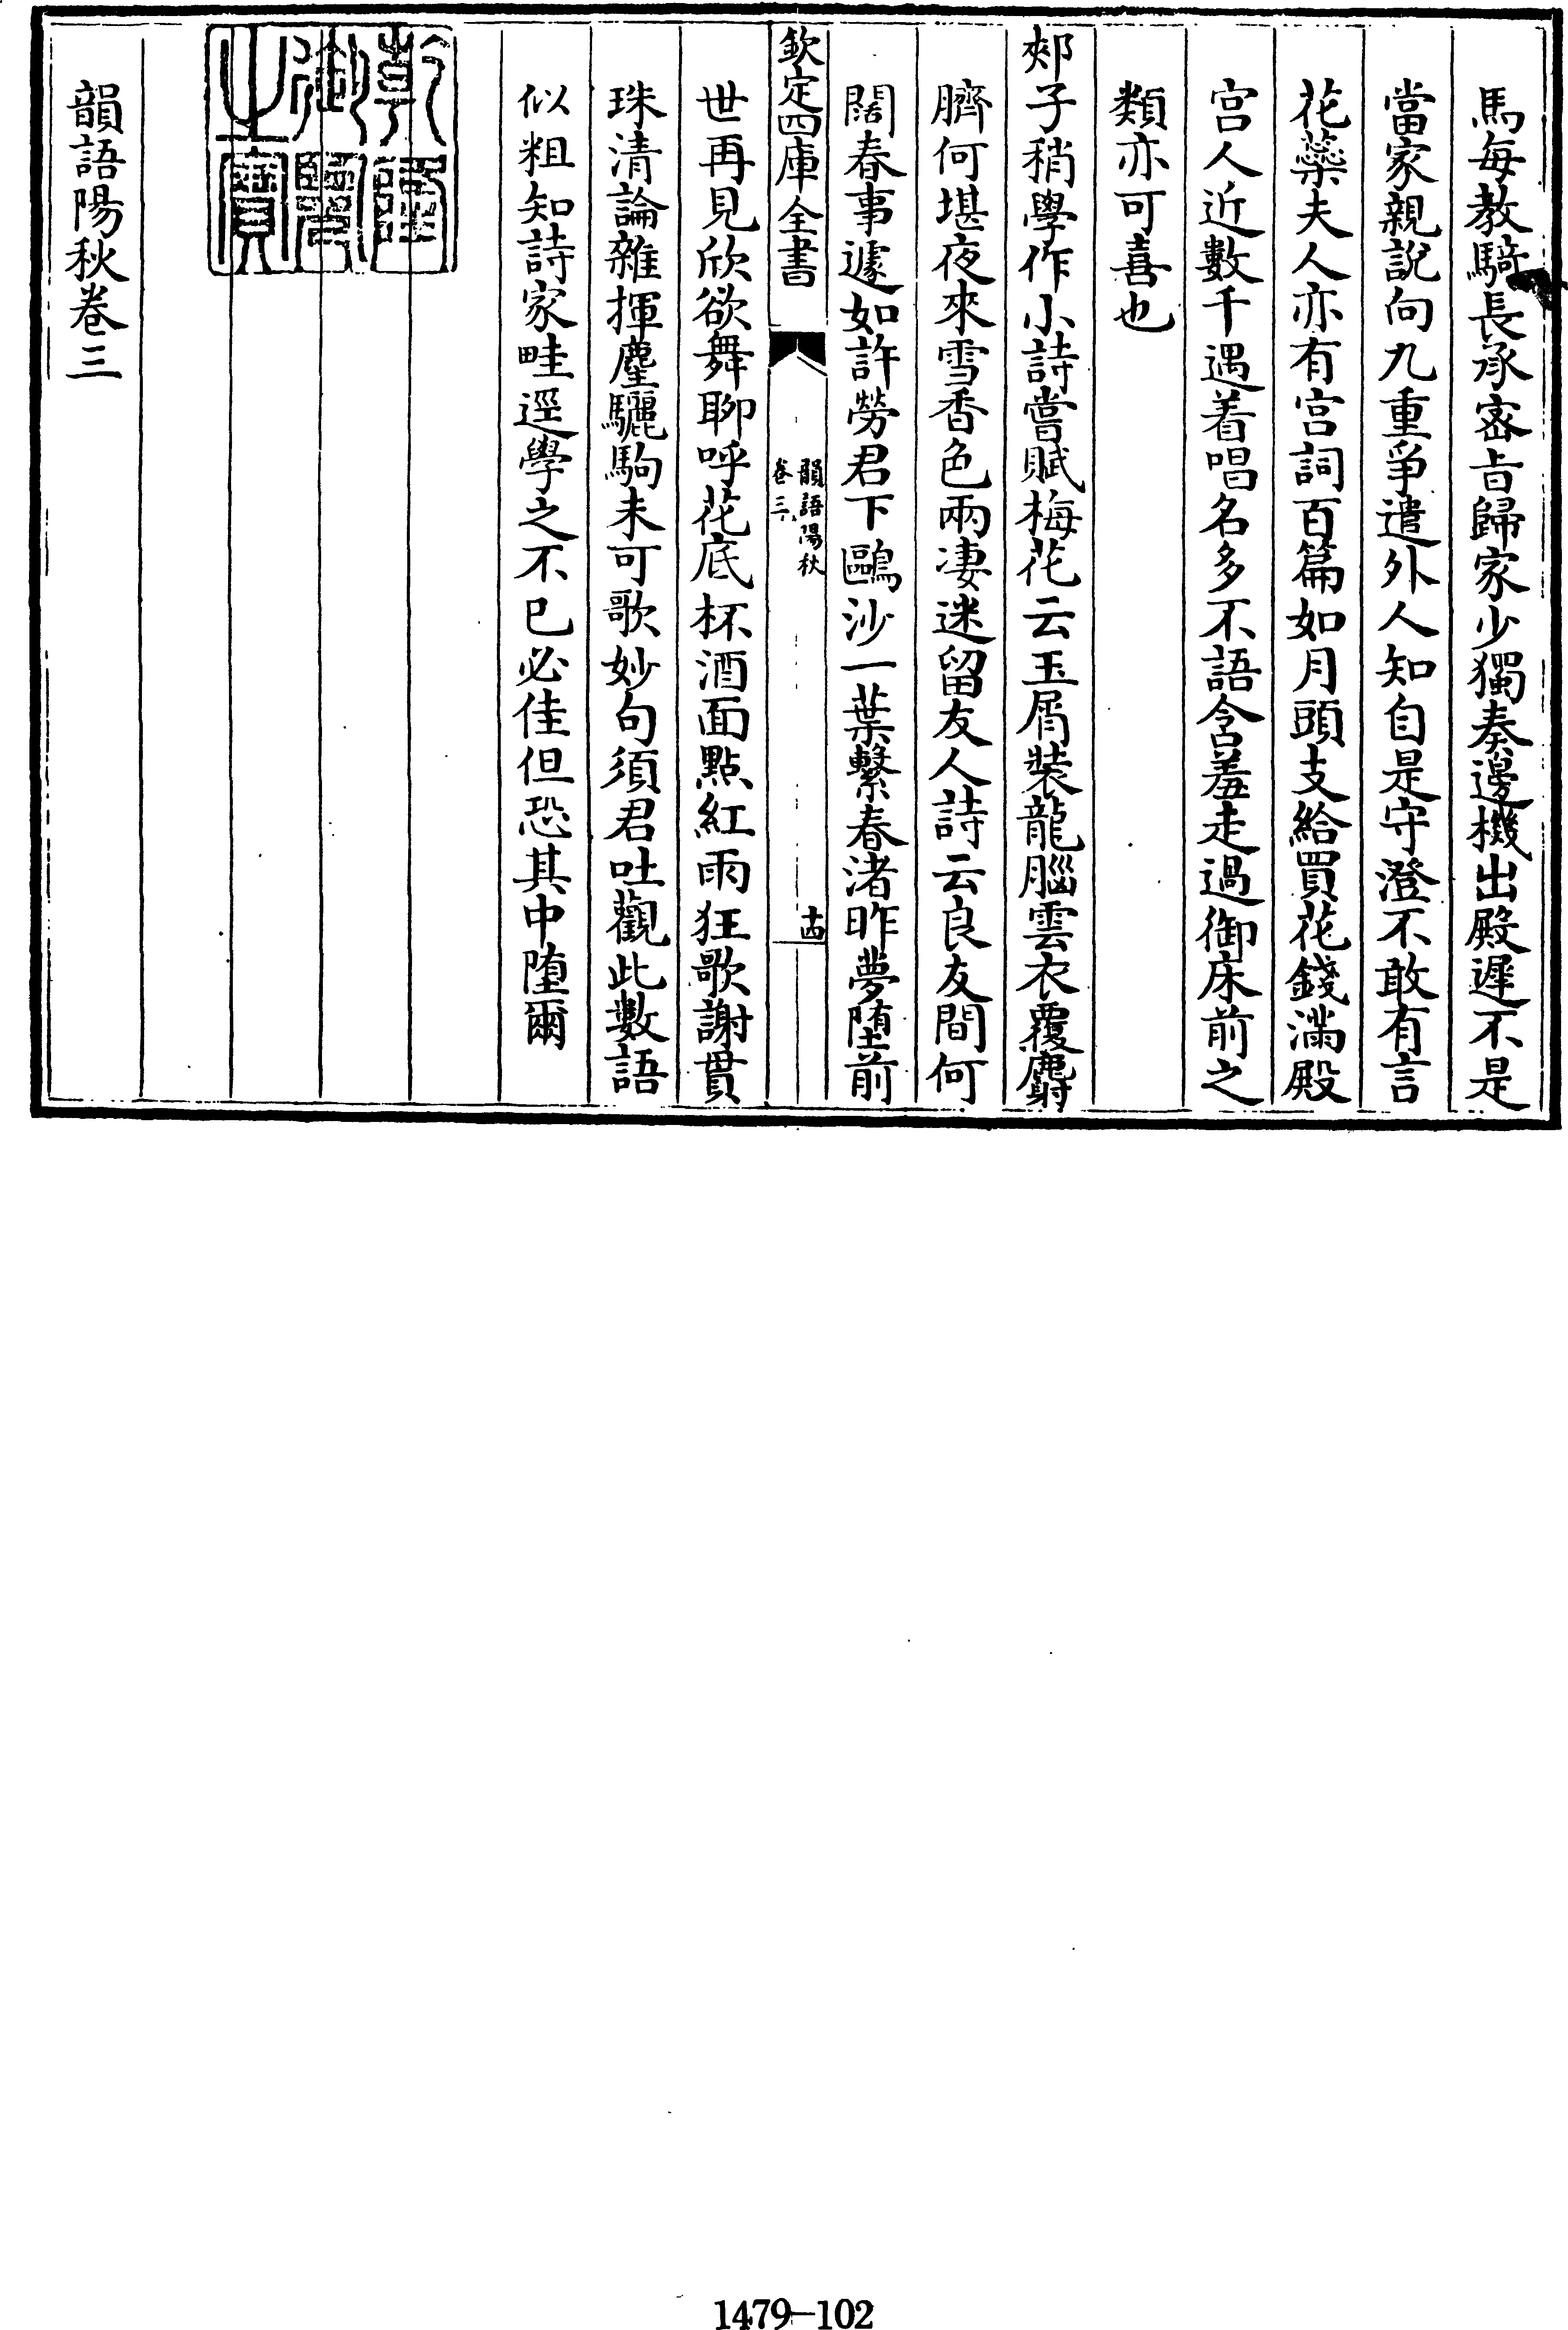 馬每教騎長承宻㫖歸家少獨奏邊機出殿遲不是
當家親説向九重爭遣外人知自是守澄不敢有言
花蘂夫人亦有宫詞百篇如月頭支給買花錢滿殿
宫人近數千遇着唱名多不語含羞走過御床前之
類亦可喜也
郟子稍學作小詩嘗賦梅花云玉屑装龍腦雲衣覆麝
臍何堪夜來雪香色兩凄迷留友人詩云良友間何
闊春事遽如許勞君下鷗沙一葉繫春渚昨夢堕前
欽定四庫全書
韻語陽秋
卷三
十四
世再見欣欲舞聊呼花底杯酒面點紅雨狂歌謝貫
珠清論雜揮麈驪駒未可歌妙句須君吐觀此數語
似粗知詩家畦逕學之不已必佳但恐其中堕爾
乾隆御覽之寶
韻語陽秋卷三
1479-102